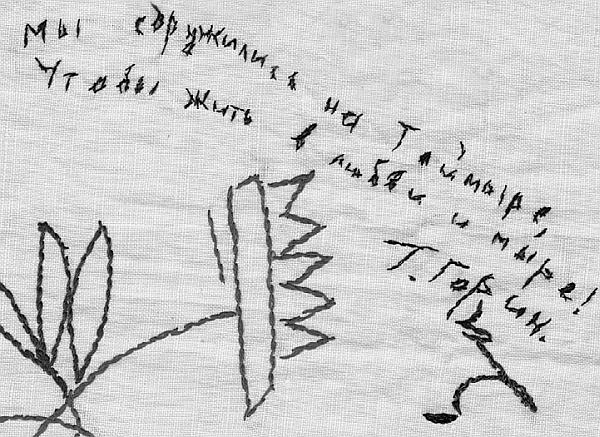 Мы сдружились на Таймыре,
Чтобы жить в любви и мыре!
Т. Горбин.